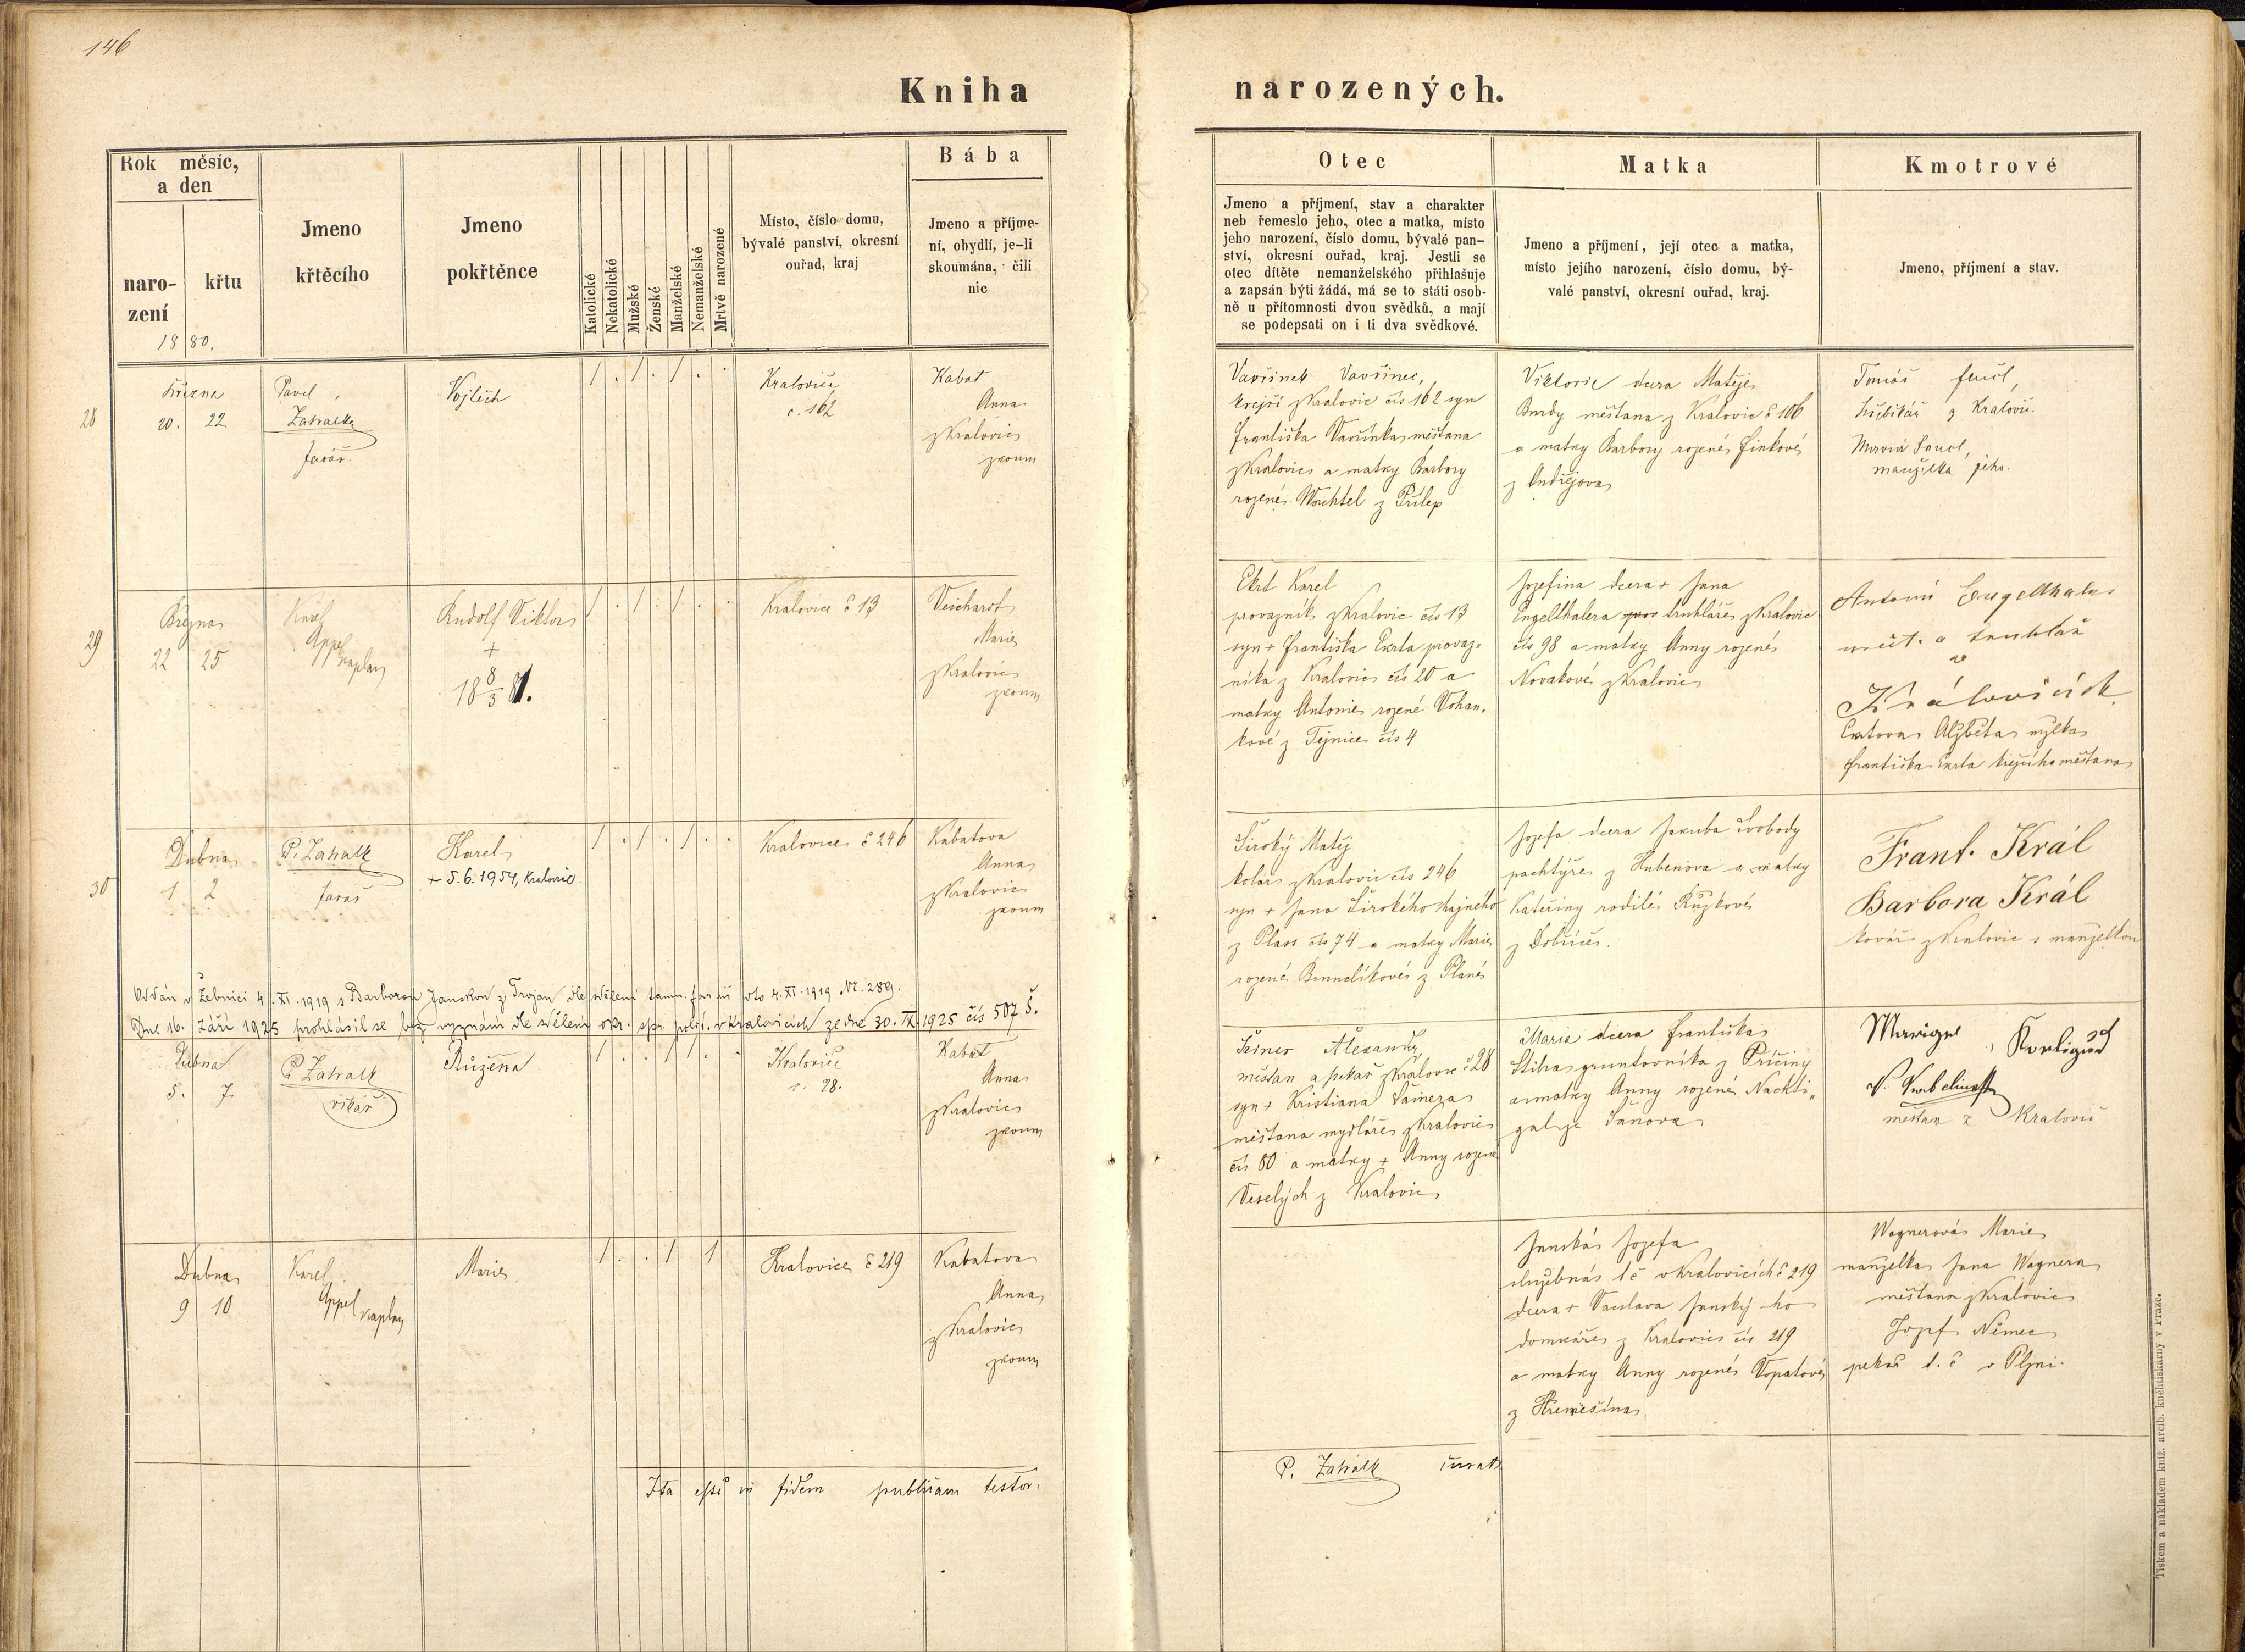 146
Kniha narozených.
Rok měsíc, a den
naro-
zení
křtu
1880.
Jmeno
křtěcího
Jmeno
pokřtěnce
Katolické
Nekatolické
Mužské
Ženské
Manželské
Nemanželské
Mrtvě narozené
Místo, číslo domu,
bývalé panství, okresní
ouřad, kraj
Bába
Jmeno a příjme-
ní, obydlí, je-li
skoumána, čili
nic
Otec
Jmeno a příjmení, stav a charakter
neb řemeslo jeho, otec a matka, místo
jeho narození, číslo domu, bývalé pan-
ství, okresní ouřad, kraj. Jestli se
otec dítěte nemanželského přihlašuje
a zapsán býti žádá, má se to státi osob-
ně u přítomnosti dvou svědků, a mají
se podepsati on i ti dva svědkové.
Matka
Jmeno a příjmení, její otec a matka,
místo jejího narození, číslo domu, bý-
valé panství, okresní ouřad, kraj.
Kmotrové
Jmeno, příjmení a stav.
28
Března
20. 22
Pavel
Zahalka
farář.
Vojtěch
/ . / . / . .
Kralovice
č. 162
Kabat
Anna
z Kralovic
zkoum
Vavřinek Vavřinec,
krejčí z Kralovic čís 162 syn
Františka Vavřinka měštana
z Kralovic a matky Barbory
rozené Wachtel z Přílep
Viktorie dcera Matěje
Burdy měštana z Kralovic č 106
a matky Barbory rozené Finkové
z Ondřejova
Tomáš
z Kralovic.
Maria
manželka jeho.
29
Března
22 25
Karel
Appel
kaplan
Rudolf Viktor
+
18 8/3 81.
/ . / . / . .
Kralovice č 13
Veichart
Marie
z Kralovic
zkoum
Ekrt Karel
provazník z Kralovic čís 13
syn + Františka Ekrta provaz-
níka z Kralovic čís 20 a
matky Antonie rozené Vohan-
kové z Tejnice čís 4
Jozefina dcera + Jana
Engelthalera truhláře z Kralovic
čís 98 a matky Anny rozené
Novakové z Kralovic
Antonín Engelthaler
měšt. a truhlář
v
Královicích.
Ekrtova Alžběta mželka
Františka Ekrta krejčího měštana
30
Dubna
1 2
P. Zahalk
farář
Karel
+ 5.6.1954, Kralovice.
/ . / . / . .
Kralovice č 246
Kabatova
Anna
z Kralovic
zkoum
Široký Matěj
kolář z Kralovic čís 246
syn + Jana Širokého hajného
z Plass čís 74 a matky Marie
rozené z Plané
Jozefa dcera Jakuba Svobody
pachtýře z Hubenova a matky
Kateřiny rodilé Růžkové
z Dobříče.
Frant. Král
Barbora Král
kovář z Kralovic s manželkou
Oddán v Žebnici 4. XI. 1919 s Barborou Janskou z Trojan dle sdělení tamn. far. úř. dto 4. XI. 1919 Nr. 289.
Dne 16. září 1925 prohlásil se bez vyznání dle sdělení okr. spr. polit. v Kralovicích ze dne 30. IX. 1925 čís 507 Š.
Dubna
5. 7.
P Zahalk
vikář
Růžena
/ . . / / . .
Kralovice
č. 28.
Kabat
Anna
z Kralovic
zkoum
Šeiner Alexandr
měštan a pekař z Kralovic č 28
syn + Kristiana Šainera
měštana mydláře z Kralovic
čís 80 a matky + Anny rozené
Veselých z Kralovic
Marie dcera Františka
Stihra gruntovníka z Příčiny
a matky Anny rozené Nachti-
gal ze Šanova
měštan z Kralovic
Dubna
9 10
Karel
Appel kaplan
Marie
/ . . / 1
Kralovice č 219
Kabatova
Anna
z Kralovic
zkoum
Janská Jozefa
služebná t č v Kralovicích č 219
dcera + Vaclava Janský-ho
domkáře z Kralovic čís 219
a matky Anny rozené Vopatové
z Hřemešína
Wagnerová Marie
manželka Jana Wagnera
měštana z Kralovic
Jozef Němec
pekař t. č. v Plzni.
Ita esse in fidem publicam testor:
P. Zahálk
Tiskem a nákladem kníž. arcib. kněhtiskárny v Praze.